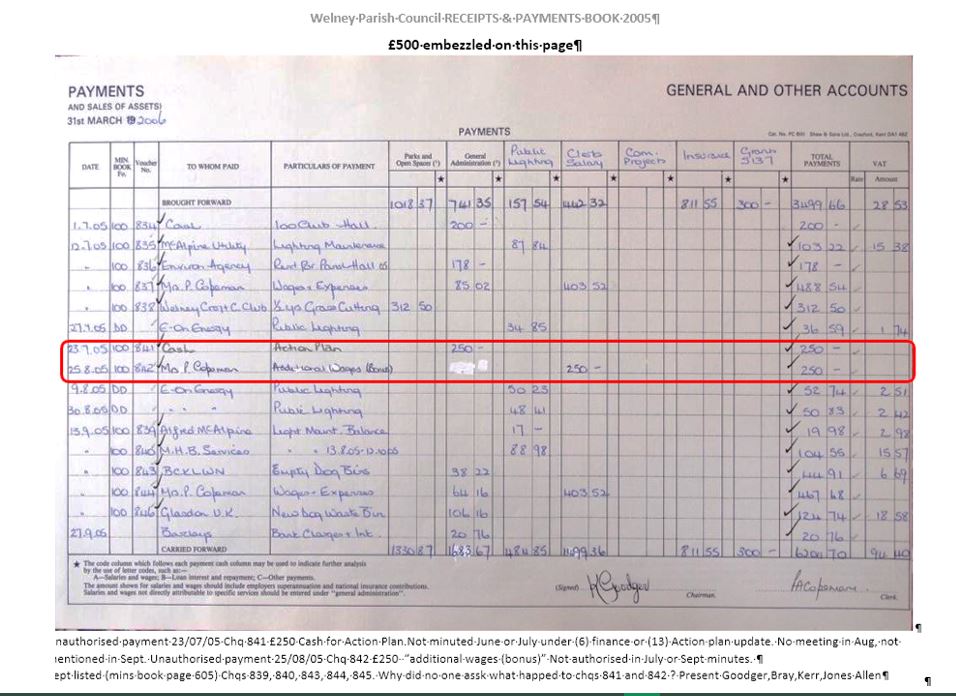 Welney·Parish·Council·RECEIPTS·&·PAYMENTS·BOOK·2005¶
£500·embezzled·on·this·page¶
PAYMENTS
AND SALES OF ASSETS)
31st MARCH 2006
GENERAL AND OTHER ACCOUNTS
PAYMENTS
Cat. No. PC BIII Shaw & Sons Ltd., Crayford, Kent DA1 4BZ
DATE MIN. BOOK Fo. Voucher No. TO WHOM PAID PARTICULARS OF PAYMENT Parks and Open Spaces (*) General Administration (*) Public Lighting Clerk Salary Com. Projects Insurance Grant S137 TOTAL PAYMENTS VAT
★ ★ ★ ★ ★ ★ ★ Rate Amount
BROUGHT FORWARD 1018 37 741 35 157 54 442 32 811 55 300 - 3499 66 28 53
1.7.05 100 834 Cash 100 Club Hall 200 - 200 -
12.7.05 100 835 McAlpine Utility Lighting Maintenance 87 84 103 22 15 38
" 100 836 Environ Agency Rent Br Parish Hall 05 178 - 178 -
" 100 837 Mrs P. Copeman Wages + Expenses 85 02 403 52 488 54
" 100 838 Welney Croft C. Club ½ys Grass Cutting 312 50 312 50
27.7.05 DD E-On Energy Public Lighting 34 85 36 59 1 74
23.7.05 100 841 Cash Action Plan 250 - 250 -
25.8.05 100 842 Mrs P. Copeman Additional Wages (Bonus) 250 - 250 -
9.8.05 DD E-On Energy Public Lighting 50 23 52 74 2 51
30.8.05 DD " " " Public Lighting 48 41 50 83 2 42
13.9.05 100 839 Alfred McAlpine Light Maint. Balance 17 - 19 98 2 98
" 100 840 M.H.B. Services " " 13.8.05- 88 98 104 55 15 57
" 100 843 BCKLWN Empty Dog Bins 38 22 44 91 6 69
" 100 844 Mrs. P. Copeman Wages + Expenses 64 16 403 52 467 68
" 100 846 Glasdon U.K. New Dog Waste Bin 106 16 124 74 18 58
27.9.05 Barclays Bank Charges + Int. 20 76 20 76
CARRIED FORWARD 1330 87 1683 67 484 85 1499 36 811 55 300 - 70 94 40
★ The code column which follows each payment cash column may be used to indicate further analysis
by the use of letter codes, such as:—
A—Salaries and wages; B—Loan interest and repayment; C—Other payments.
The amount shown for salaries and wages should include employers superannuation and national insurance contributions.
Salaries and wages not directly attributable to specific services should be entered under "general administration".
(Signed) Goodger Chairman. PACopeman Clerk.
nauthorised·payment·23/07/05·Chq·841·£250·Cash·for·Action·Plan.·Not·minuted·June·or·July·under·(6)·finance·or·(13)·Action·plan·update.··No·meeting·in·Aug,·not·
entioned·in·Sept.·Unauthorised·payment·25/08/05·Chq·842·£250·-"additional·wages·(bonus)"·Not·authorised·in·July·or·Sept·minutes.·¶
ept·listed·(mins·book·page·605)·Chqs·839,·840,·843,·844,·845.·Why·did·no·one·assk·what·happened·to·chqs·841·and·842·?·Present·Goodger,Bray,Kerr,Jones·Allen¶